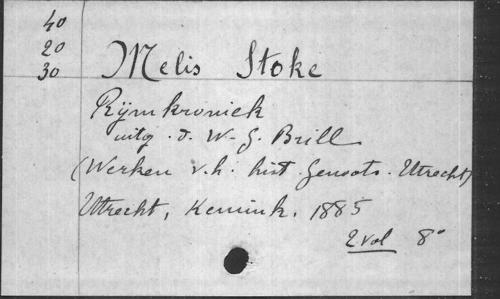 40
20
30
Melis Stoke
Rijmkroniek
uitg. d. W. G. Brill
(Werken v.h. hist. Genoots. Utrecht)
Utrecht, Kemink. 1885
2 vol 8°